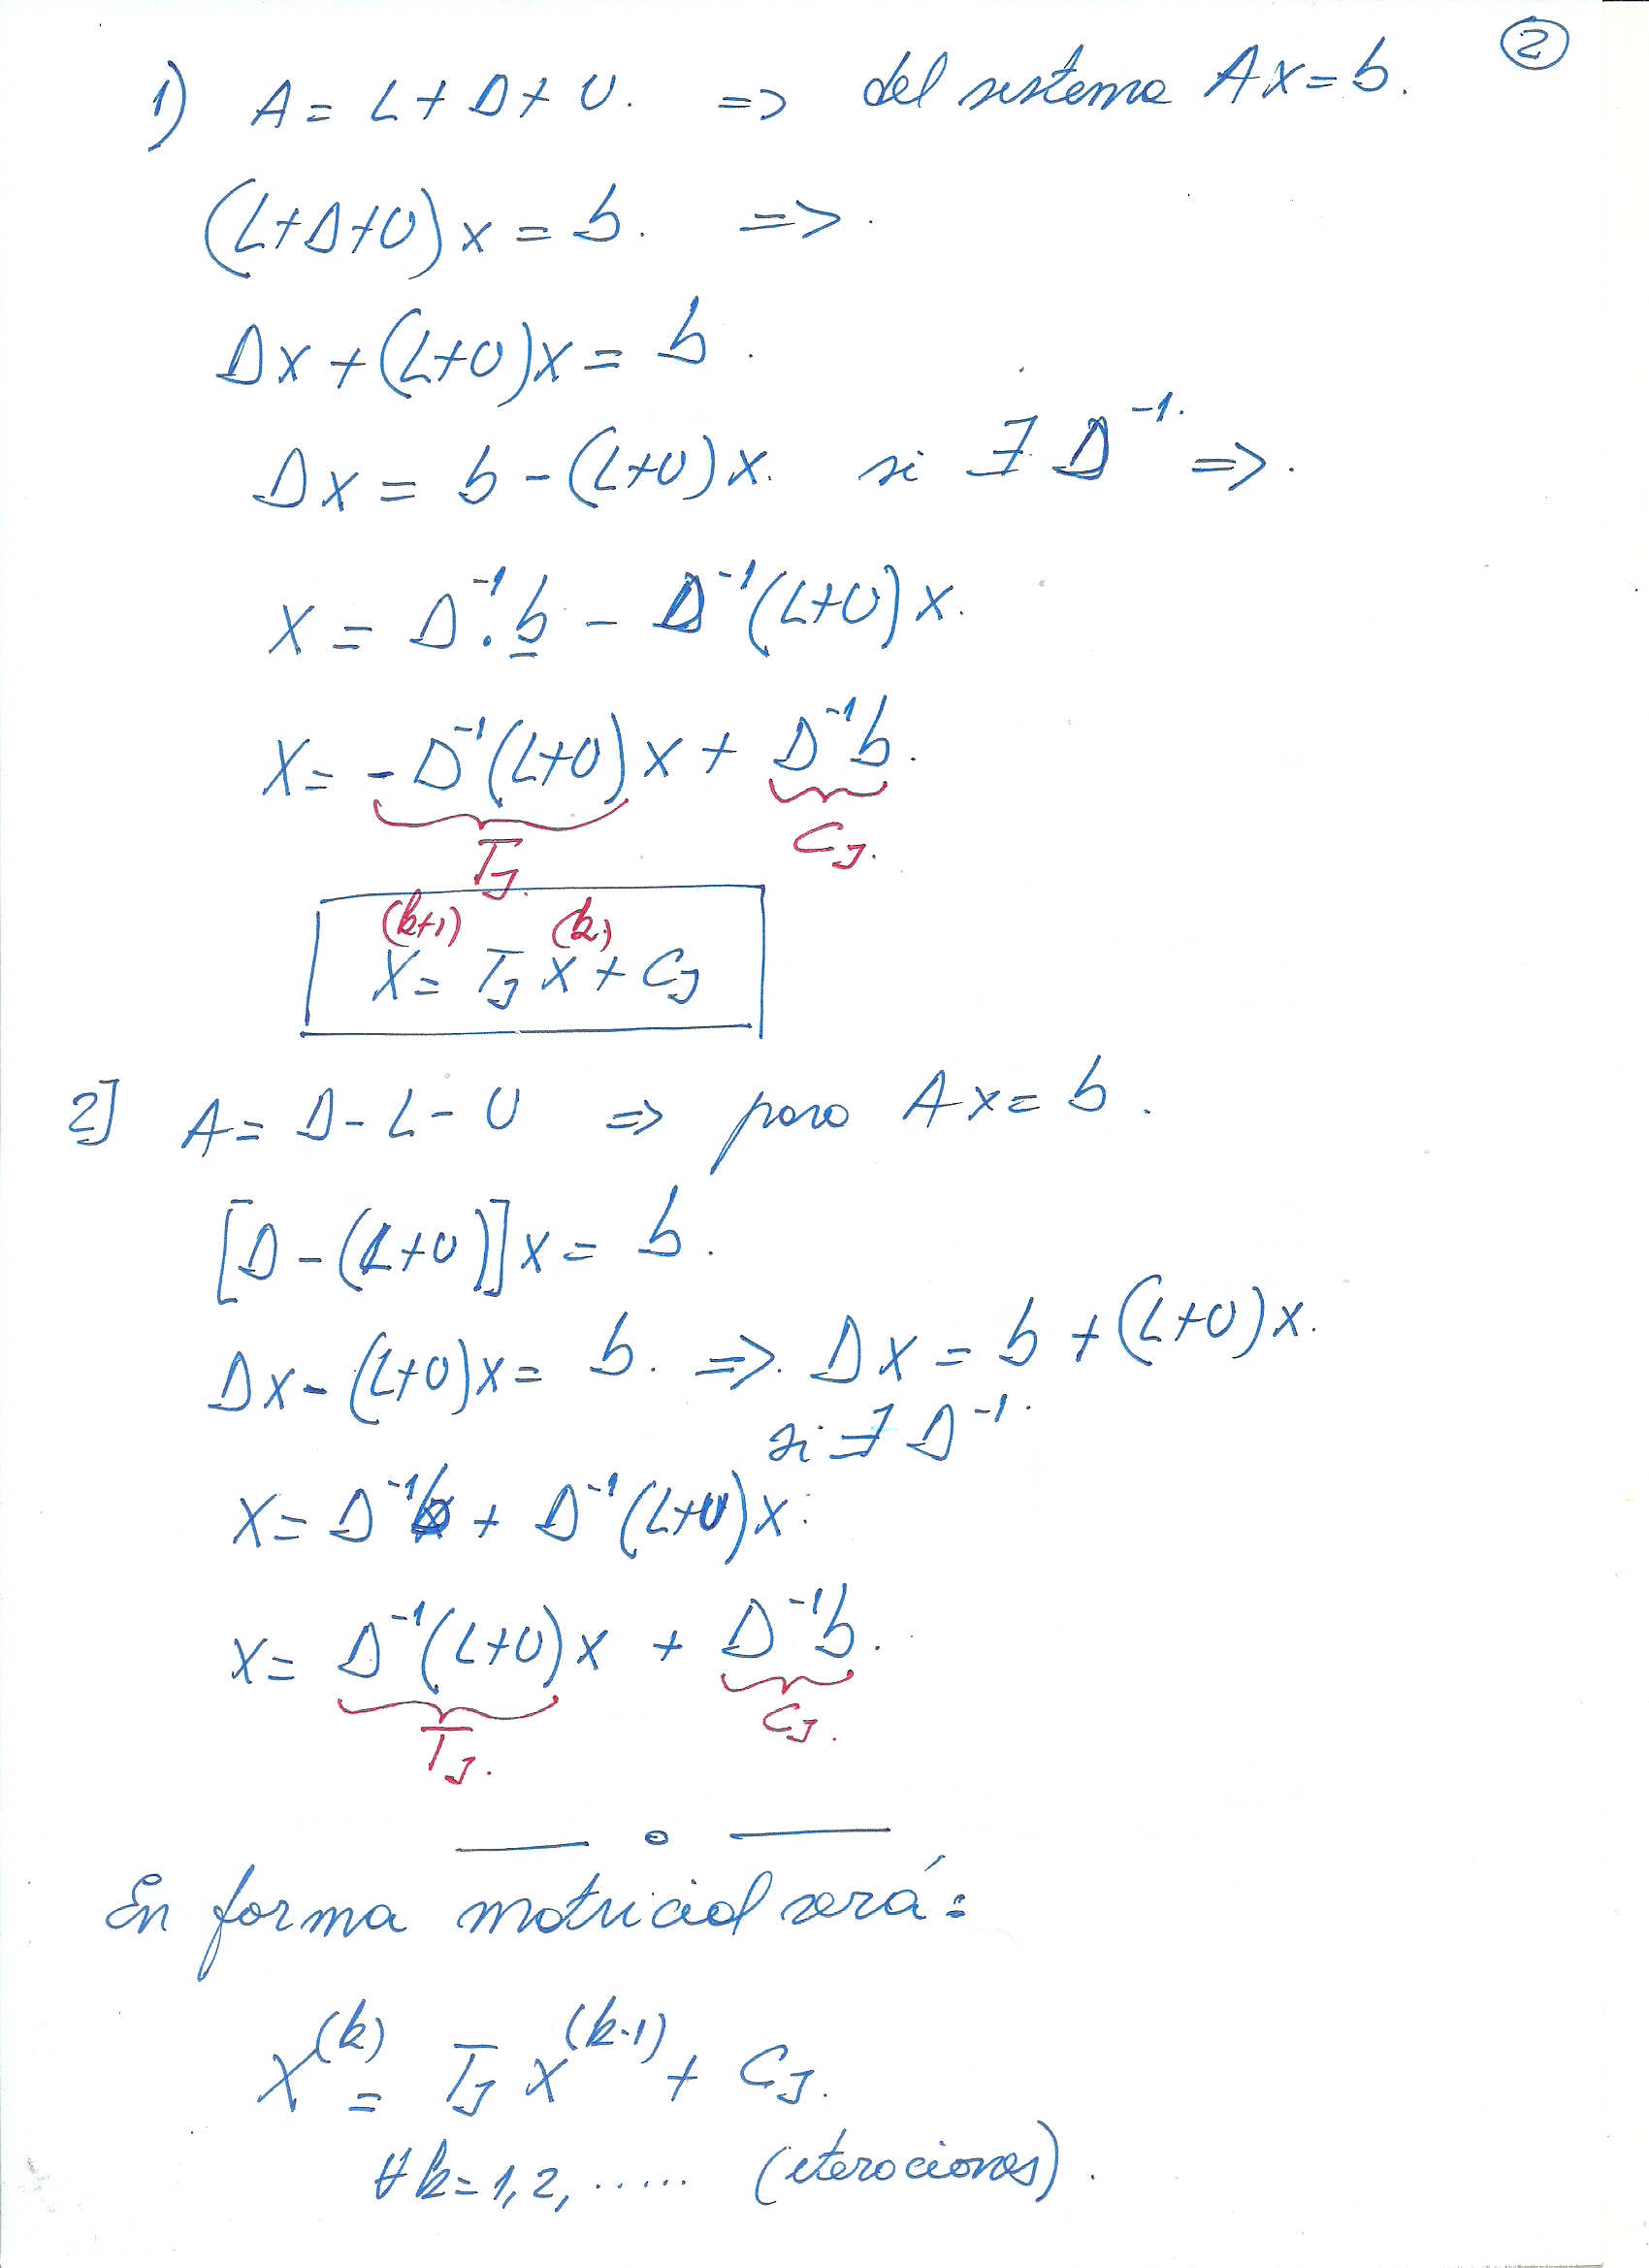 ②
1) A = L + D + U. => del sistema Ax = b.
(L+D+U)x = b. =>.
Dx + (L+U)x = b.
Dx = b - (L+U)x. si ∃ D⁻¹. =>.
x = D⁻¹.b - D⁻¹(L+U)x.
x = -D⁻¹(L+U)x + D⁻¹b.
T_J. C_J.
x^(k+1) = T_J x^(k) + C_J
2] A = D - L - U => para Ax = b.
[D - (L+U)]x = b.
Dx - (L+U)x = b. =>. Dx = b + (L+U)x.
si ∃ D⁻¹.
x = D⁻¹b + D⁻¹(L+U)x.
x = D⁻¹(L+U)x + D⁻¹b.
T_J. C_J.
En forma matricial será:
x^(k) = T_J x^(k-1) + C_J.
∀ k = 1, 2, ...... (iteraciones).